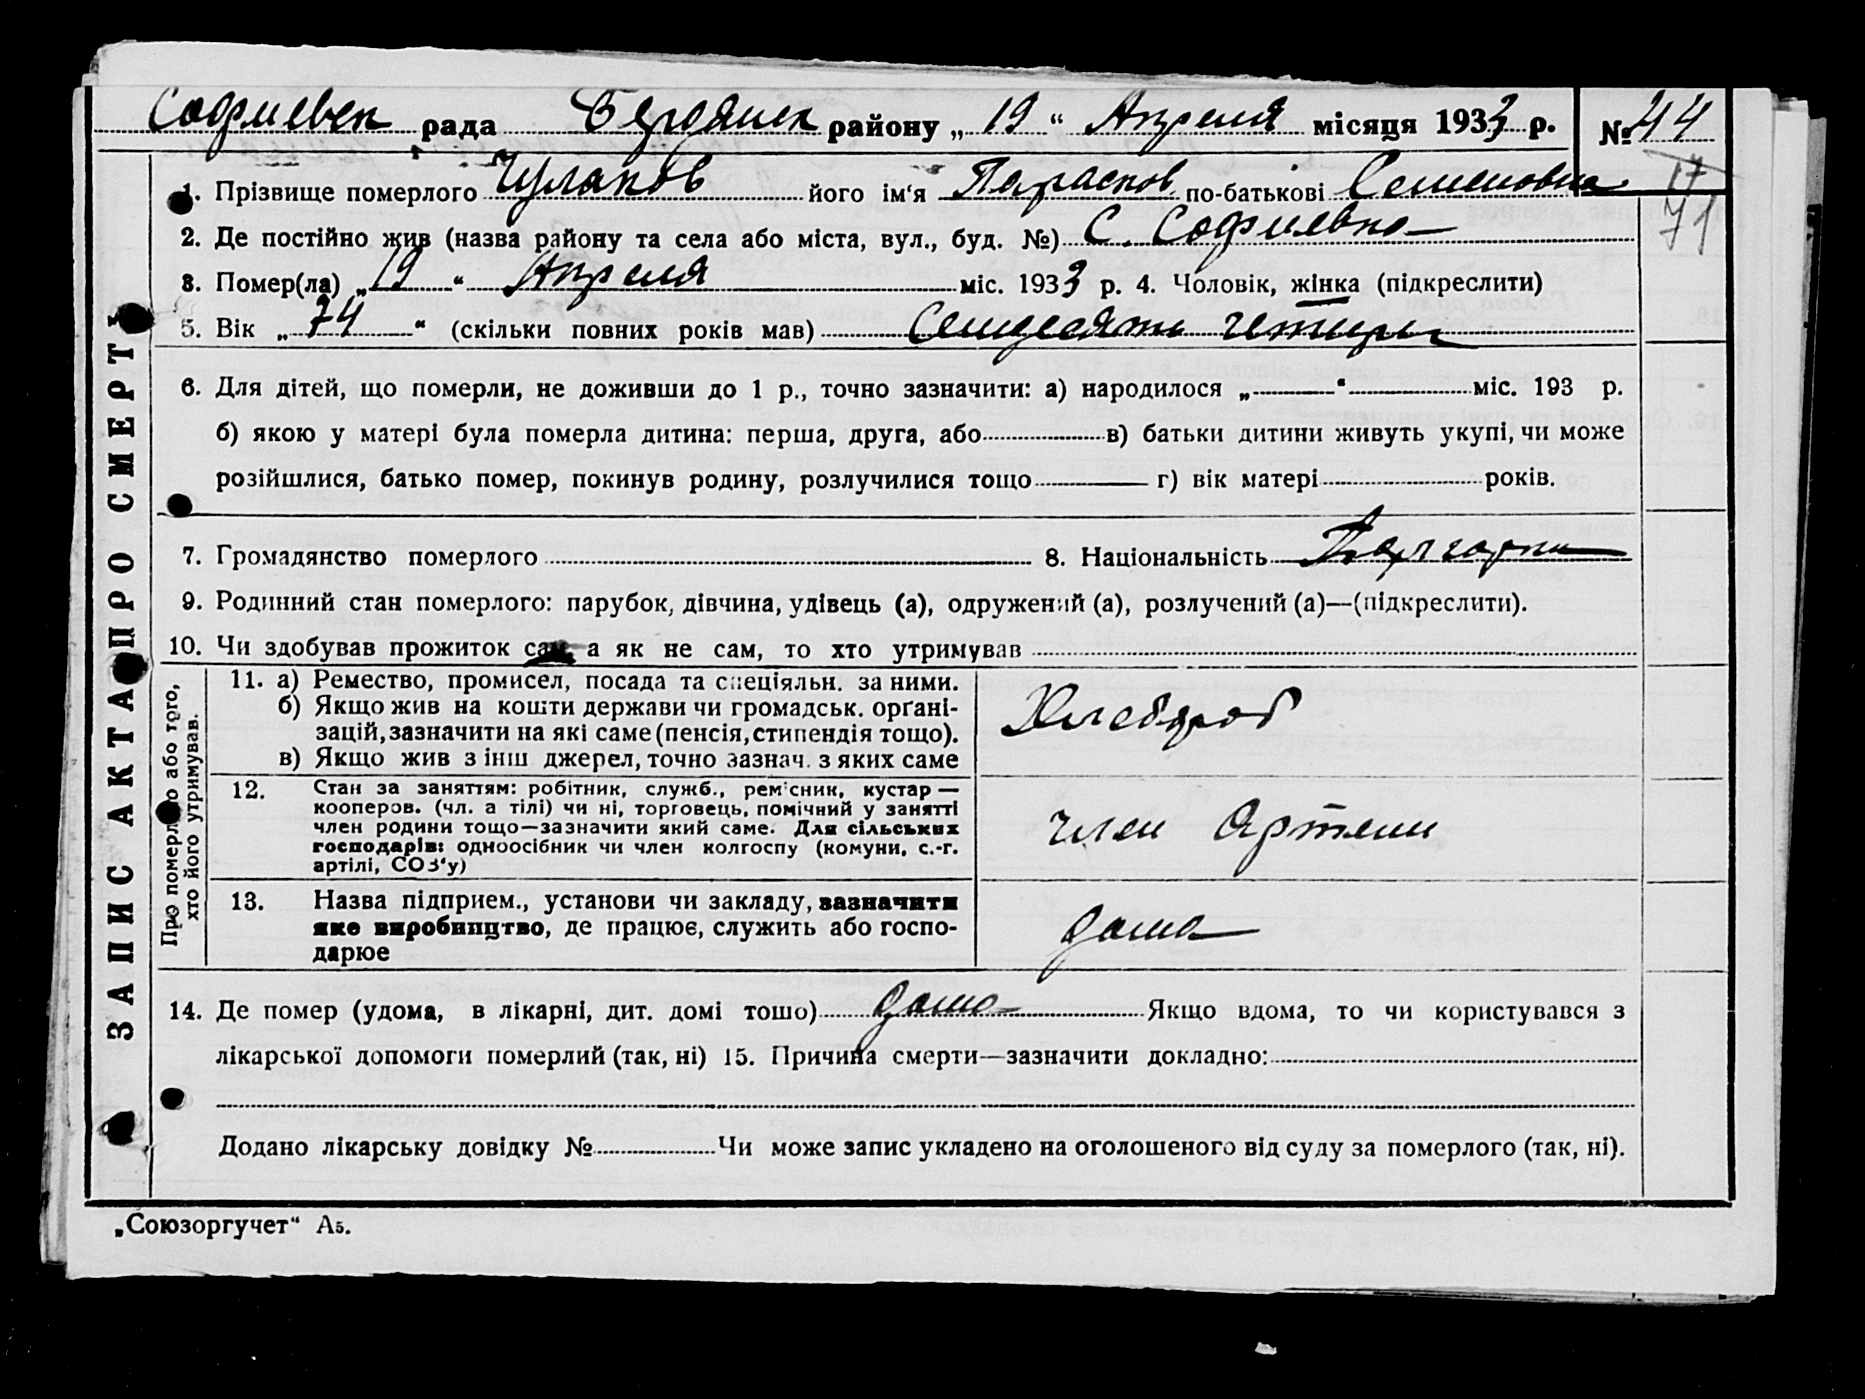 Софиевск рада Бердянск районy „ 19 “ Апреля місяця 1933 р. № 44
17
71
1. Прізвище померлого Чулаков його ім‘я Парасков по-батькові Семеновна
2. Де постійно жив (назва району та села або міста, вул., буд. №) С. Софиевка
3. Помер(ла) „ 19 “ Апреля міс. 1933 р. 4. Чоловік, жінка (підкреслити)
5. Вік „ 74 “ (скільки повних років мав) Семдесять четыры
6. Для дітей, що померли, не доживши до 1 р., точно зазначити: а) народилося „ “ міс. 193 р.
б) якою у матері була померла дитина: перша, друга, або в) батьки дитини живуть укупі, чи може
розійшлися, батько помер, покинув родину, розлучилися тощо г) вік матері років.
7. Громадянство померлого 8. Національність Болгарка
9. Родинний стан померлого: парубок, дівчина, удівець (а), одружений (а), розлучений (а)—(підкреслити).
10. Чи здобував прожиток сам, а як не сам, то хто утримував
ЗАПИС АКТА ПРО СМЕРТЬ
Про померлого або того,
хто його утримував.
11. а) Ремество, промисел, посада та спеціяльн. за ними.
б) Якщо жив на кошти держави чи громадськ. орґані-
зацій, зазначити на які саме (пенсія, стипендія тощо).
в) Якщо жив з інш джерел, точно зазнач. з яких саме
Хлебороб
12. Стан за заняттям: робітник, служб., рем‘сник, кустар —
кооперов. (чл. а тілі) чи ні, торговець, помічний у занятті
член родини тощо—зазначити який саме. Для сільських
господарів: одноосібник чи член колгоспу (комуни, с.-г.
артілі, СОЗ‘у)
член Артели
13. Назва підприєм., установи чи закладу, зазначити
яке виробництво, де працює, служить або госпо-
дарює
дома
14. Де помер (удома, в лікарні, дит. домі тошо) дома Якщо вдома, то чи користувався з
лікарської допомоги померлий (так, ні) 15. Причина смерти—зазначити докладно:
Додано лікарську довідку № Чи може запис укладено на оголошеного від суду за померлого (так, ні).
„Союзоргучет“ А5.